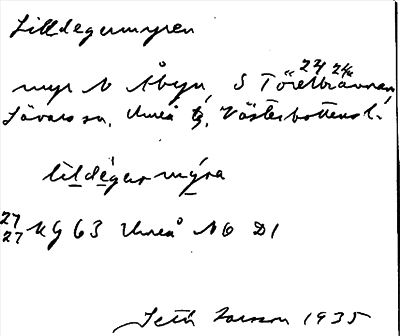 Lilldegermyren
myr N Åbyn, S
Sävars sn, Umeå tg, Västerbottens l.
lildègermýra
27 27 KG 63 Umeå NO D1
Seth Larsson 1935